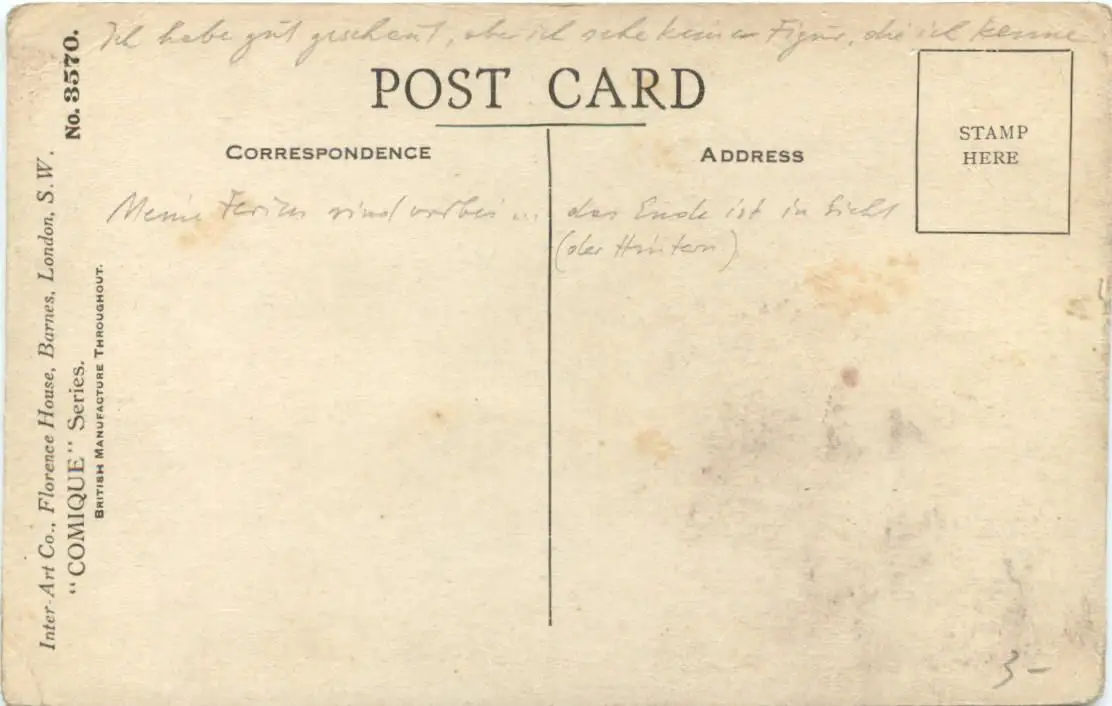 Ich habe gut geschaut, aber ich sehe keine Figur, die ich kenne
POST CARD
CORRESPONDENCE
ADDRESS
STAMP
HERE
Meine Ferien sind vorbei ... das Ende ist in Sicht
(der Hintern)
3-
Inter-Art Co., Florence House, Barnes, London, S.W.
"COMIQUE" Series. No. 3570.
BRITISH MANUFACTURE THROUGHOUT.